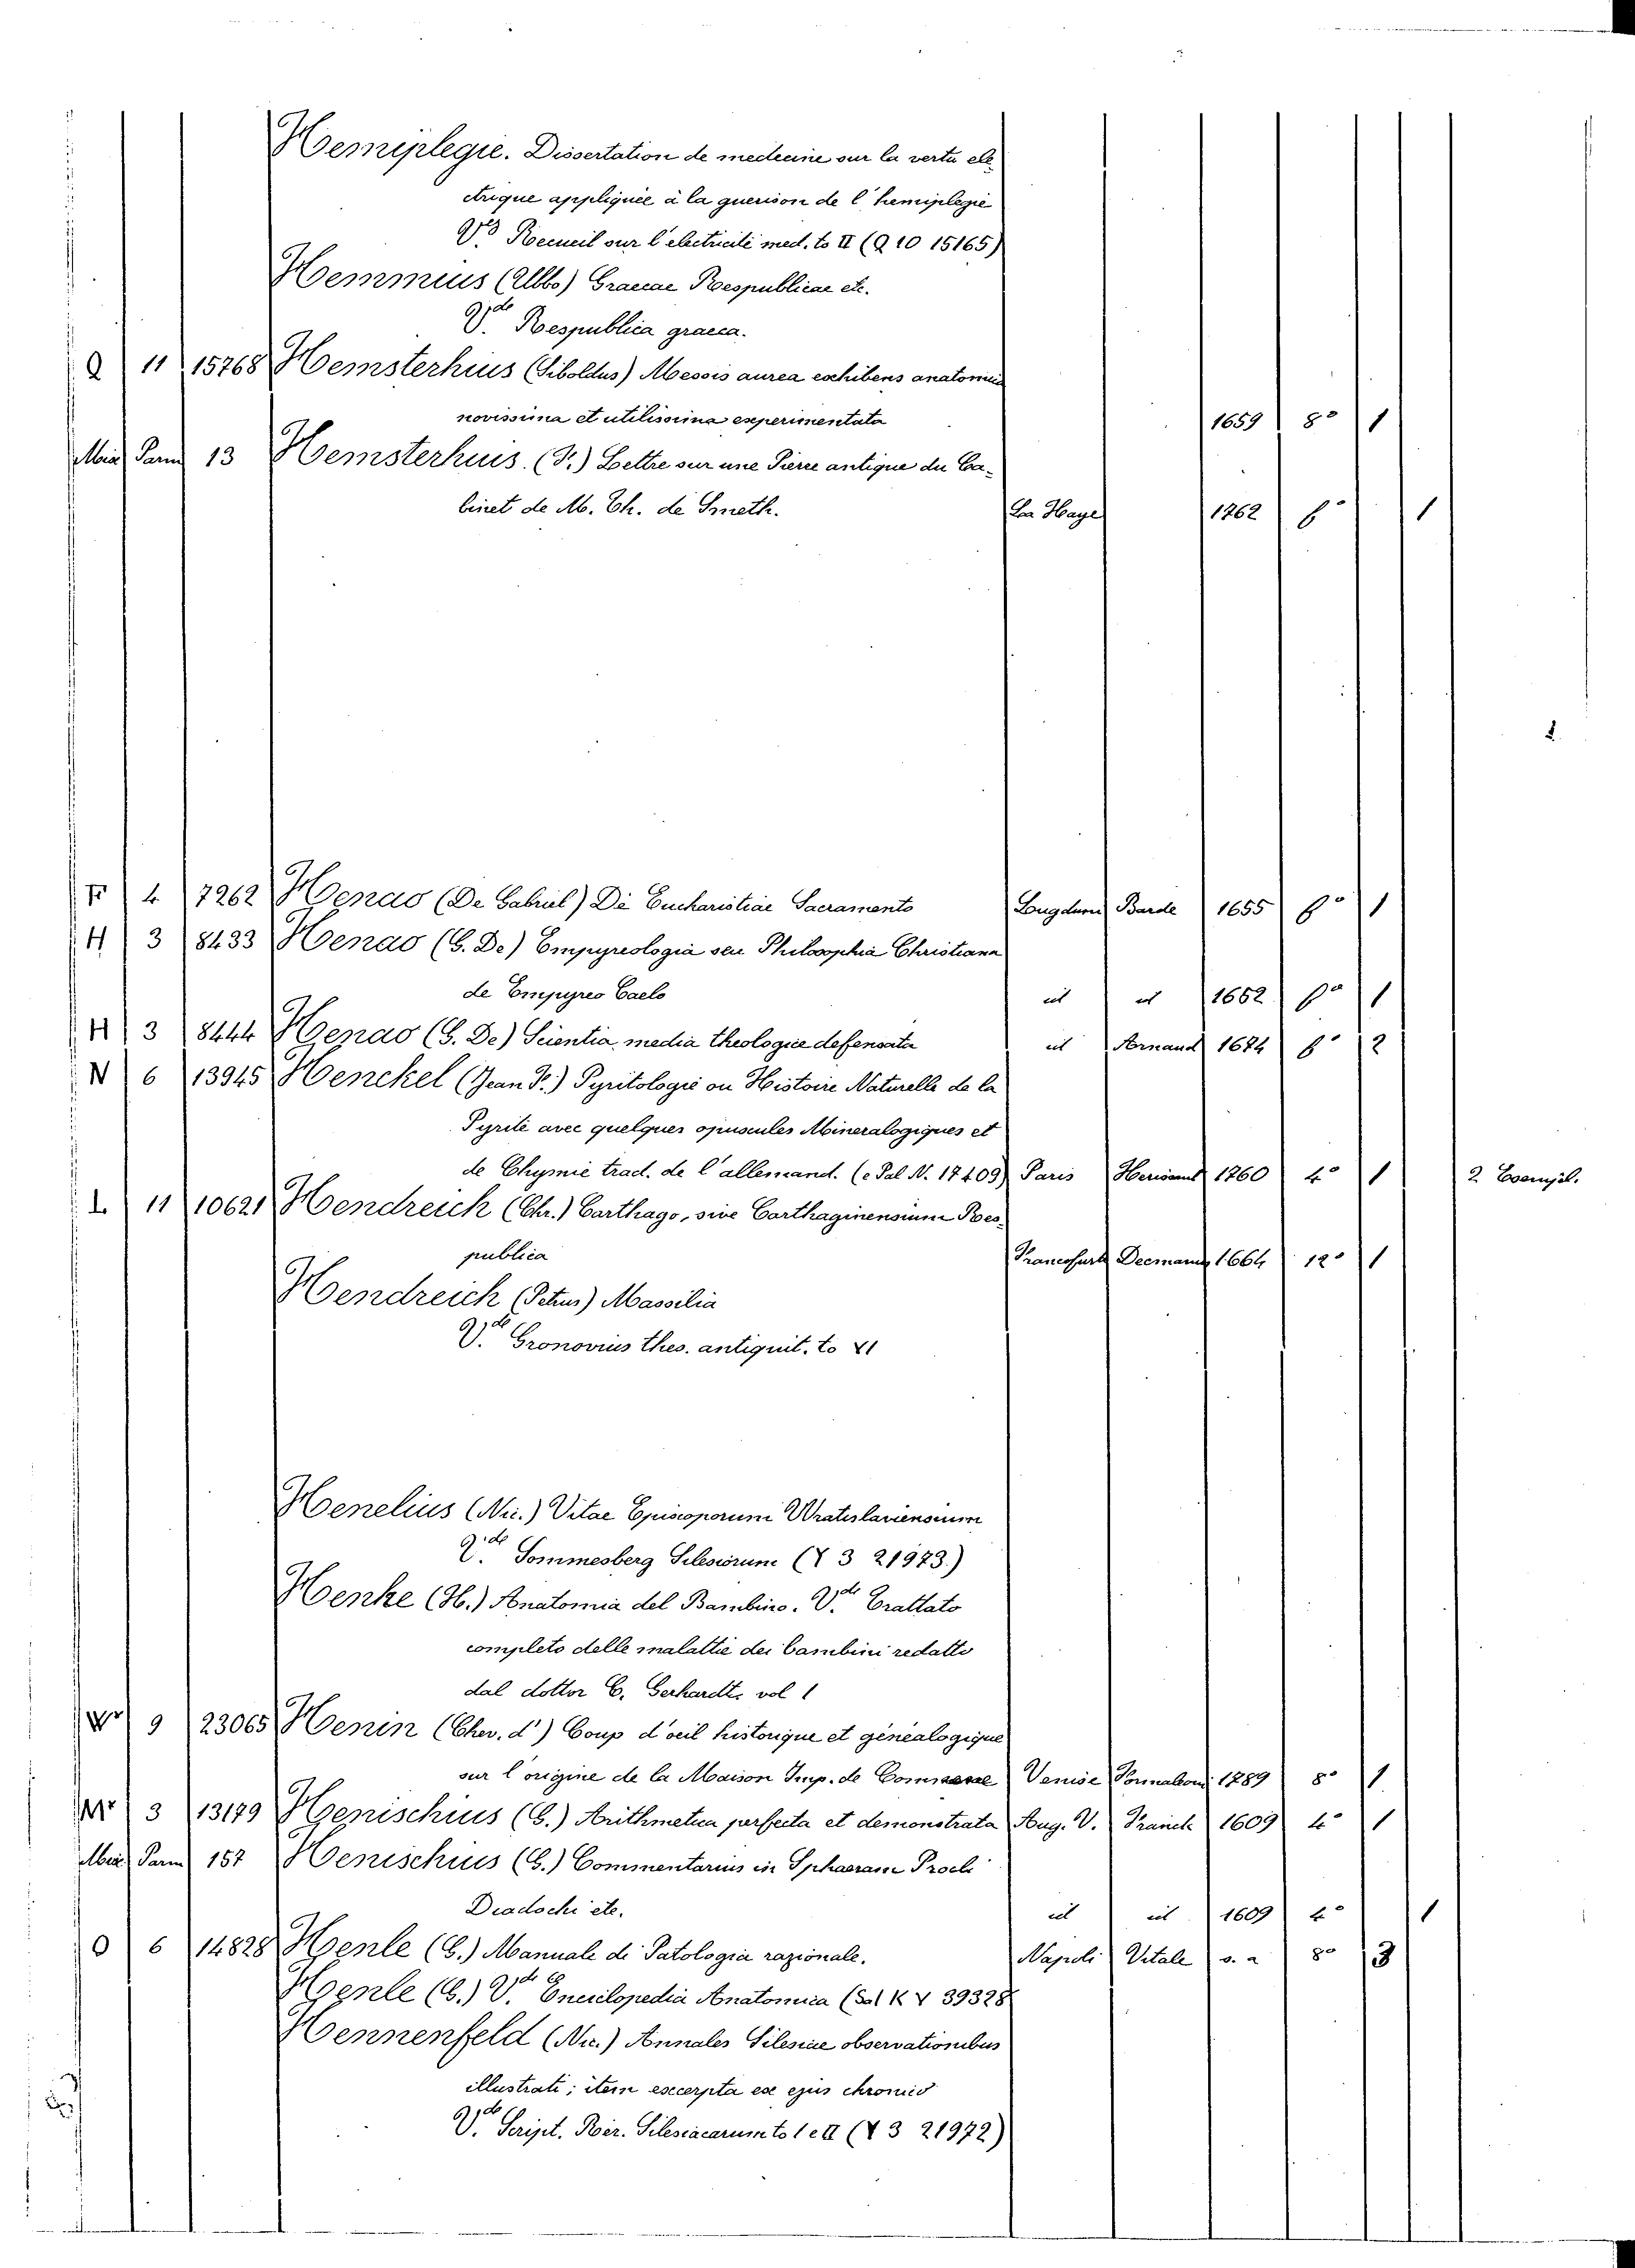 Hemiplegie. Dissertation de medecine sur la vertu ele
ctrique appliquée à la guerison de l'hemiplegie
Vd Recueil sur l'electricité med. to II (Q 10 15165)
Hemmius (Albo) Graecae Respublicae etc.
V.de Respublica graeca.
Q 11 15768 Hemsterhius (Siboldus) Messis aurea exhibens anatomica
novissima et utilissima experimentata 1659 8° 1
Parm 13 Hemsterhuis. (F.) Lettre sur une Pierre antique du Ca-
binet de M. Th. de Smeth. La Haye 1762 1
F 4 7262 Henao (De Gabriel) De Eucharistiae Sacramento Lugduni Barde 1655 1
H 3 8433 Henao (G. De) Empyreologia seu Philosophia Christiana
de Empyreo Caelo ut ut 1652 1
H 3 8444 Henao (G. De) Scientia media theologice defensata ut Arnaud 1674 2
N 6 13945 Henckel (Jean F.) Pyritologie ou Histoire Naturelle de la
Pyrite avec quelques opuscules Mineralogiques et
de Chymie trad. de l'allemand. (e Pal N. 17409) Paris Herissant 1760 4° 1 2 Esempl.
L 11 10621 Hendreich (Chr.) Carthago, sive Carthaginensium Res-
publica Francofurt Deemann 1664 12° 1
Hendreich (Petrus) Massilia
V.de Gronovius thes. antiquit. to VI
Henelius (Nic.) Vitae Episcoporum Wratislaviensium
V.de Sommesberg Silesiorum (V 3 21973.)
Henke (H.) Anatomia del Bambino. V.de Trattato
completo delle malattie dei bambini redatto
dal dottor C. Gerhardt. vol 1
9 23065 Henin (Chev. d') Coup d'oeil historique et généalogique
sur l'origine de la Maison Imp. de Comnene Venise 1789 8° 1
3 13179 Henischius (G.) Arithmetica perfecta et demonstrata Aug. V. Franck 1609 4° 1
Parm 157 Henischius (G.) Commentarius in Sphaeram Procli
Diadochi etc. ut ut 1609 4° 1
O 6 14828 Henle (G.) Manuale di Patologia razionale. Napoli Vitale s. a 8° 3
Henle (G.) V.de Enciclopedia Anatomica (Sal K V 39328
Hennenfeld (Nic.) Annales Silesiae observationibus
illustrati; item excerpta ex ejus chronico
V.de Script. Rer. Silesiacarum to 1 e II (V 3 21972)